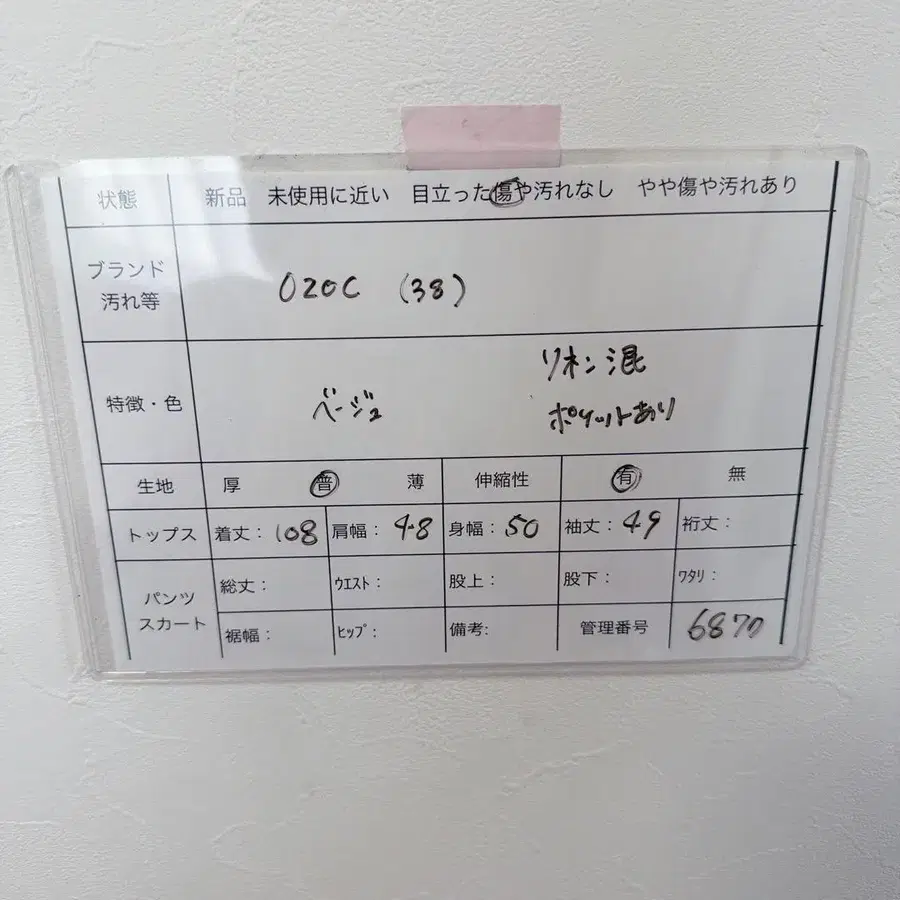 状態 新品 未使用に近い 目立った傷や汚れなし やや傷や汚れあり
ブランド
汚れ等
OZOC (38)
特徴・色
リネン混
ベージュ
ポケットあり
生地 厚 普 薄 伸縮性 有 無
トップス 着丈: 108 肩幅: 48 身幅: 50 袖丈: 49 裄丈:
パンツ
スカート
総丈: ウエスト: 股上: 股下: ワタリ:
裾幅: ヒップ: 備考: 管理番号 6877